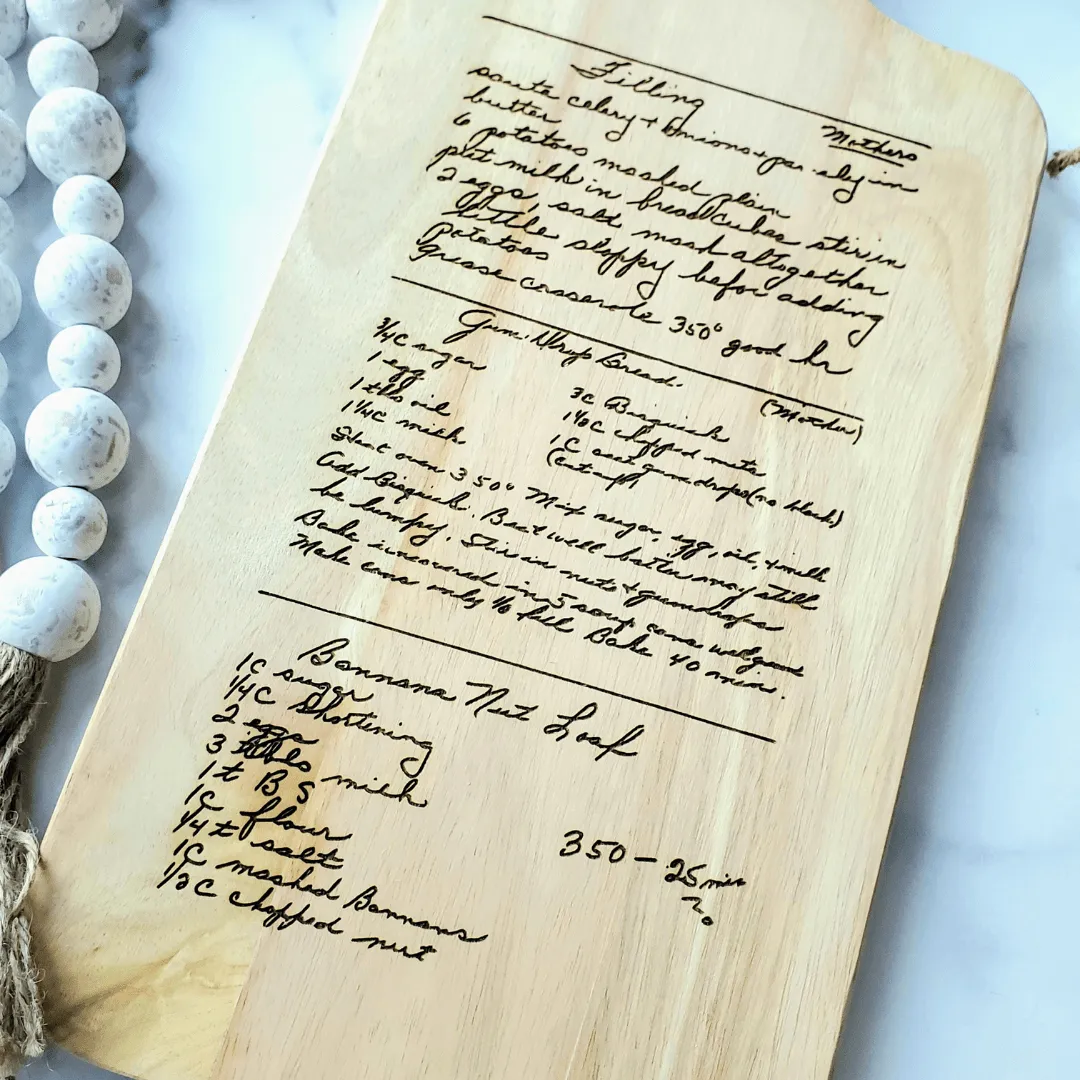 Filling
Mothers
saute celery + onions + parsley in
butter
6 potatoes mashed plain
put milk in bread cubes stir in
2 eggs, salt mash altogether
little sloppy befor adding
potatoes
Grease casserole 350° good hr
Gum Drop Bread.
(Mother)
3/4C sugar
1 egg
1 tbs oil
1 1/4C milk
3C Bisquick
chopped nuts
1C gumdrops (no black)
(cut up)
Heat oven 350° Mix sugar, egg, oil, + milk
Add Bisquick. Beat well batter may still
be lumpy. Stir in nuts + gumdrops
Bake uncovered in 5 soup cans well greased
Make cans only full Bake 40 min.
Bannana Nut Loaf
1C sugar
1/4C Shortening
2 eggs
3 tbls milk
1t B S
1C flour
1/4t salt
1C mashed Bannans
1/2C chopped nut
350 - 25 min